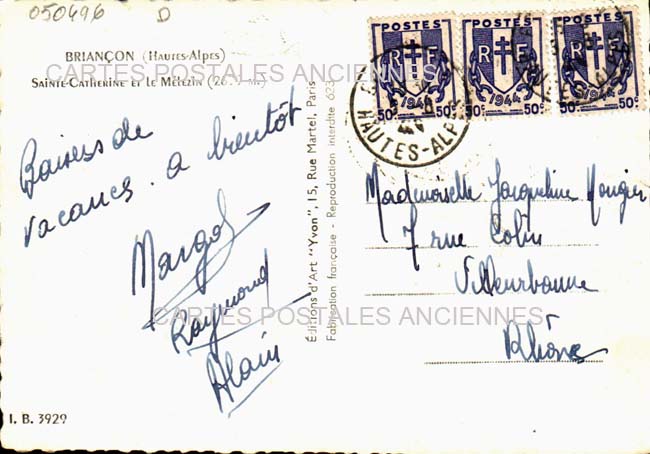 050496 D
BRIANÇON (HAUTES-ALPES)
SAINTE-CATHERINE ET LE MÉLEZIN
CARTES POSTALES ANCIENNES
Baisers de
vacances. a bientôt
Margot
Raymond
Alain
I. B. 3929
Éditions d'Art "Yvon", 15, Rue Martel, Paris
Fabrication française - Reproduction interdite 625
POSTES
RF
1944
50c 50c
POSTES
RF
1944
50c 50c
POSTES
RF
50c 50c
HAUTES-ALPES
Mademoiselle Jacqueline Mougier
7 rue Colin
Villeurbanne
Rhône
CARTES POSTALES ANCIENNES